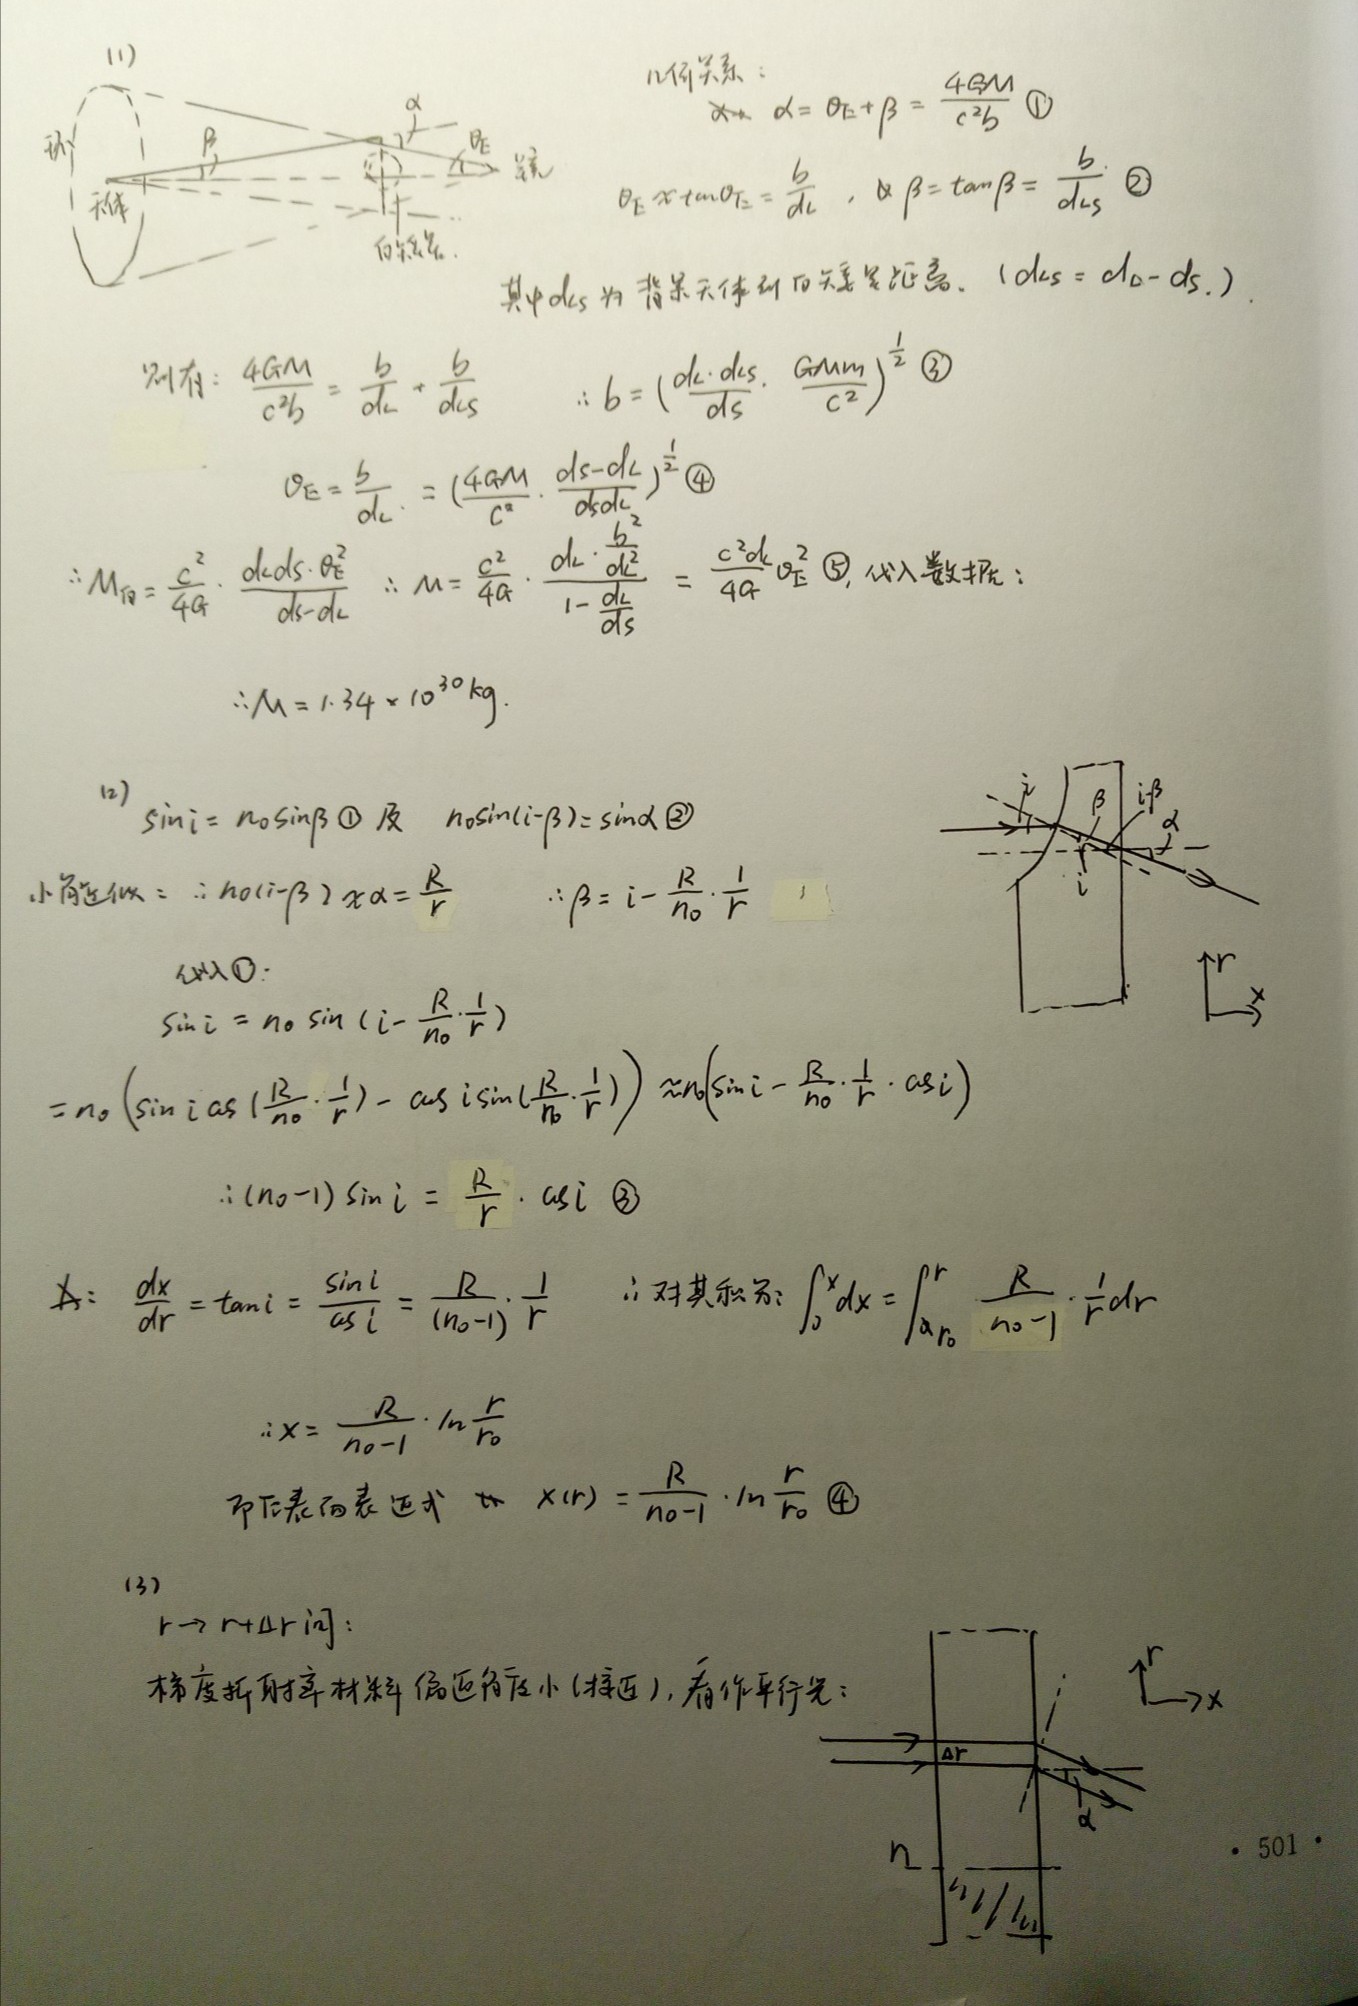 (1)
几何关系：
α = θE + β = 4GM/c²b ①
α
β
θE
环
天体
白矮星.
θE ≈ tanθE = b/dL , β = tanβ = b/dLS ②
其中dLS为背景天体到白矮星距离. (dLS = dD - dS.).
则有: 4GM/c²b = b/dL + b/dLS ∴ b = (dL·dLS/dS · GMm/c²)^{1/2} ③
θE = b/dL. = (4GM/c² · (dS-dL)/dSdL)^{1/2} ④
∴ M白 = c²/4G · dLdS·θE²/(dS-dL) ∴ M = c²/4G · (dL·b²/dL²)/(1-dL/dS) = c²dL/4G θE² ⑤, 代入数据：
∴ M = 1.34 × 10³⁰ kg.
(2)
sin i = n₀sinβ ① 及 n₀sin(i-β) = sinα ②
i β i-β α
i
小角近似: ∴ n₀(i-β) ≈ α = R/r ∴ β = i - R/n₀ · 1/r
代入①:
r
x
sin i = n₀ sin (i - R/n₀ · 1/r)
= n₀ (sin i cos (R/n₀ · 1/r) - cos i sin (R/n₀ · 1/r)) ≈ n₀(sin i - R/n₀ · 1/r · cos i)
∴ (n₀-1) sin i = R/r · cos i ③
dx/dr = tan i = sin i/cos i = R/(n₀-1) · 1/r ∴ 对其积分: ∫₀ˣ dx = ∫_{r₀}^{r} R/(n₀-1) · 1/r dr
∴ x = R/(n₀-1) · ln r/r₀
即左表面表达式 x(r) = R/(n₀-1) · ln r/r₀ ④
(3)
r → r+Δr 间:
梯度折射率材料偏近角度小(接近), 看作平行光:
r
x
Δr
α
n
· 501 ·